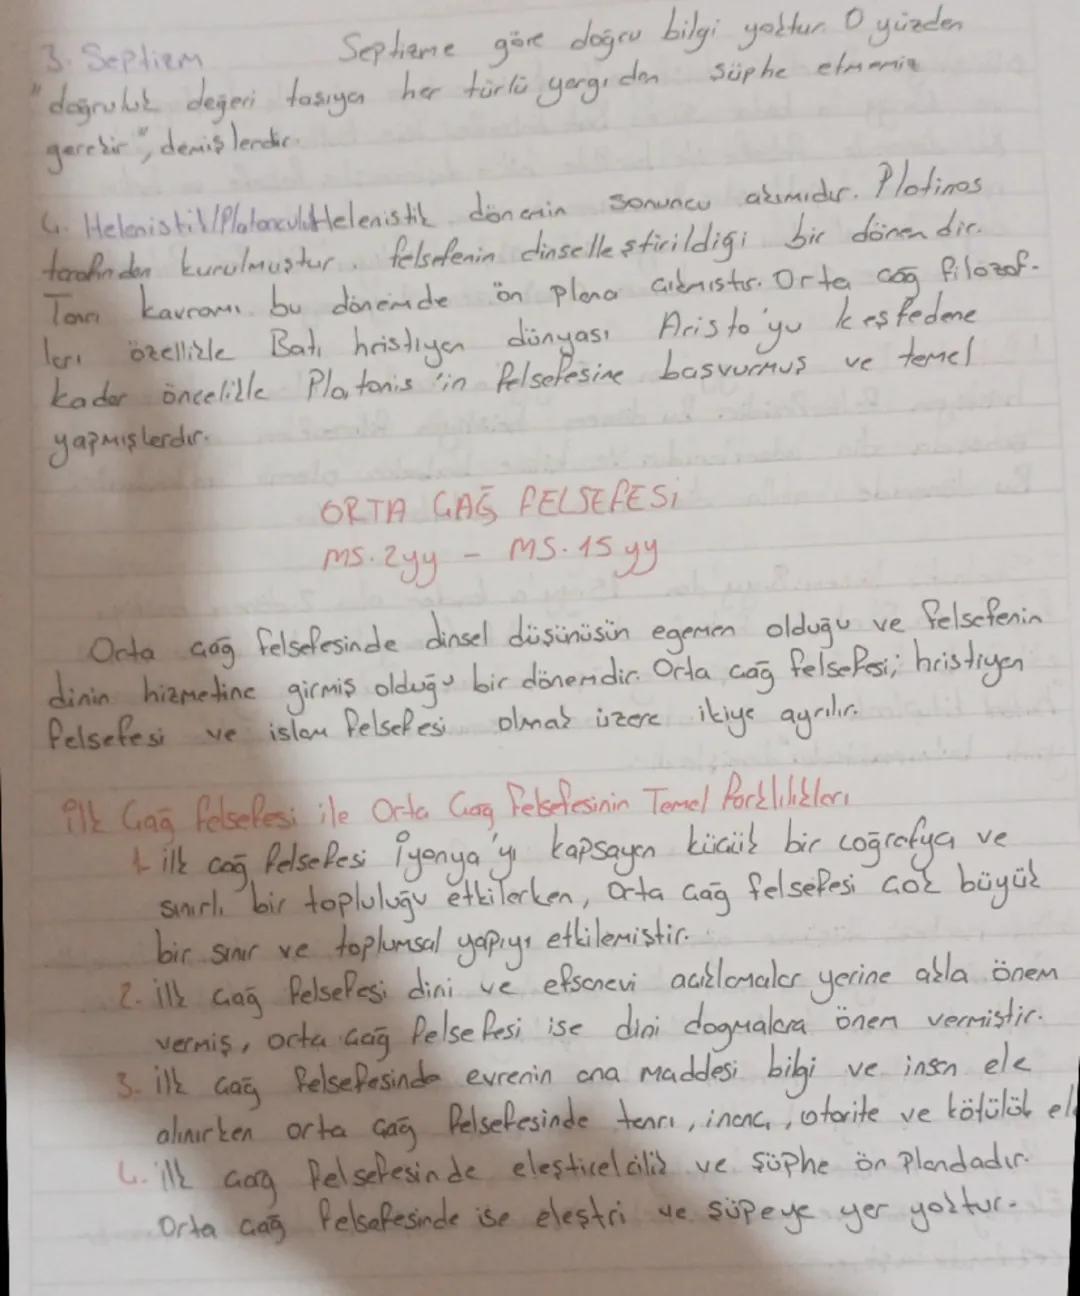 3. Septizm Septizme göre doğru bilgi yoktur. O yüzden
"doğruluk değeri taşıyan her türlü yargıdan süphe etmemiz
gerekir", demişlerdir.
4. Helenistik/Platonculuk Helenistik dönemin sonuncu akımıdır. Plotinos
tarafından kurulmuştur. felsefenin dinselleştirildiği bir dönemdir.
Tanrı kavramı bu dönemde ön plana çıkmıştır. Orta çağ filozof-
ları özellikle Batı hristiyan dünyası Aristo'yu keşfedene
kadar öncelikle Platonis'in felsefesine başvurmuş ve temel
yapmışlardır.
ORTA ÇAĞ FELSEFESİ
MS. 2yy - MS. 15 yy
Orta çağ felsefesinde dinsel düşünüşün egemen olduğu ve felsefenin
dinin hizmetine girmiş olduğu bir dönemdir. Orta çağ felsefesi; hristiyan
felsefesi ve islam felsefesi olmak üzere ikiye ayrılır.
İlk Çağ felsefesi ile Orta Çağ Felsefesinin Temel Farklılıkları
1. ilk çağ felsefesi İyonya'yı kapsayan küçük bir coğrafya ve
sınırlı bir topluluğu etkilerken, orta çağ felsefesi çok büyük
bir sınır ve toplumsal yapıyı etkilemiştir.
2. ilk çağ felsefesi dini ve efsanevi açıklamalar yerine akla önem
vermiş, orta çağ felsefesi ise dini dogmalara önem vermiştir.
3. ilk çağ felsefesinde evrenin ana maddesi bilgi ve insan ele
alınırken orta çağ felsefesinde tanrı, inanç, otorite ve kötülük el
4. ilk çağ felsefesinde eleştirelcilik ve şüphe ön plandadır.
Orta çağ felsefesinde ise eleştri ve şüpeye yer yoktur.